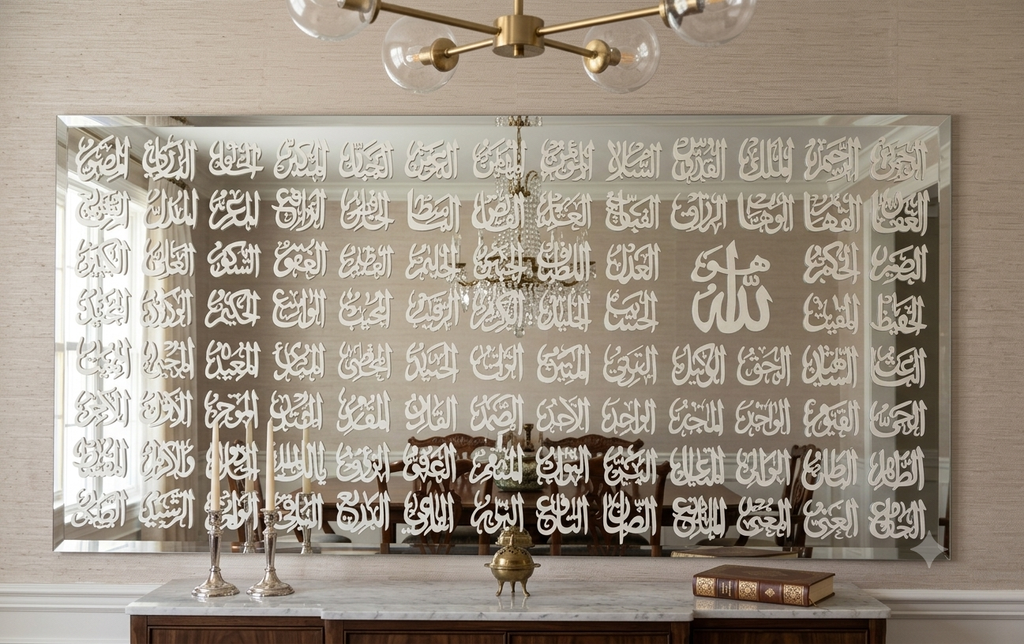 الرحمن الرحيم الملك القدوس السلام المؤمن المهيمن العزيز الجبار المتكبر الخالق البارئ المصور
الغفار القهار الوهاب الرزاق الفتاح العليم القابض الباسط الخافض الرافع المعز المذل
البصير الحكم هو الله العدل اللطيف الخبير الحليم العظيم الغفور الشكور العلي الكبير
الحفيظ المقيت الحسيب الجليل الكريم الرقيب المجيب الواسع الحكيم الودود المجيد
الباعث الشهيد الحق الوكيل القوي المتين الولي الحميد المحصي المبدئ المعيد المحيي المميت
الحي القيوم الواجد الماجد الواحد الأحد الصمد القادر المقتدر المقدم المؤخر الأول الآخر
الظاهر الباطن الوالي المتعالي البر التواب المنتقم العفو الرءوف
الجامع الغني المغني المانع الضار النافع النور الهادي البديع الباقي الوارث الرشيد الصبور